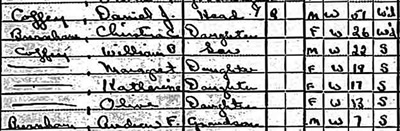 Coffey Daniel J. Head 8 M W 51 Wd
Christina Daughter F W 26 Wd
Coffey William B Son M W 22 S
— Margaret Daughter F W 19 S
— Katharine Daughter F W 17 S
— Olive Daughter F W 13 S
F. Grandson M W 7 S